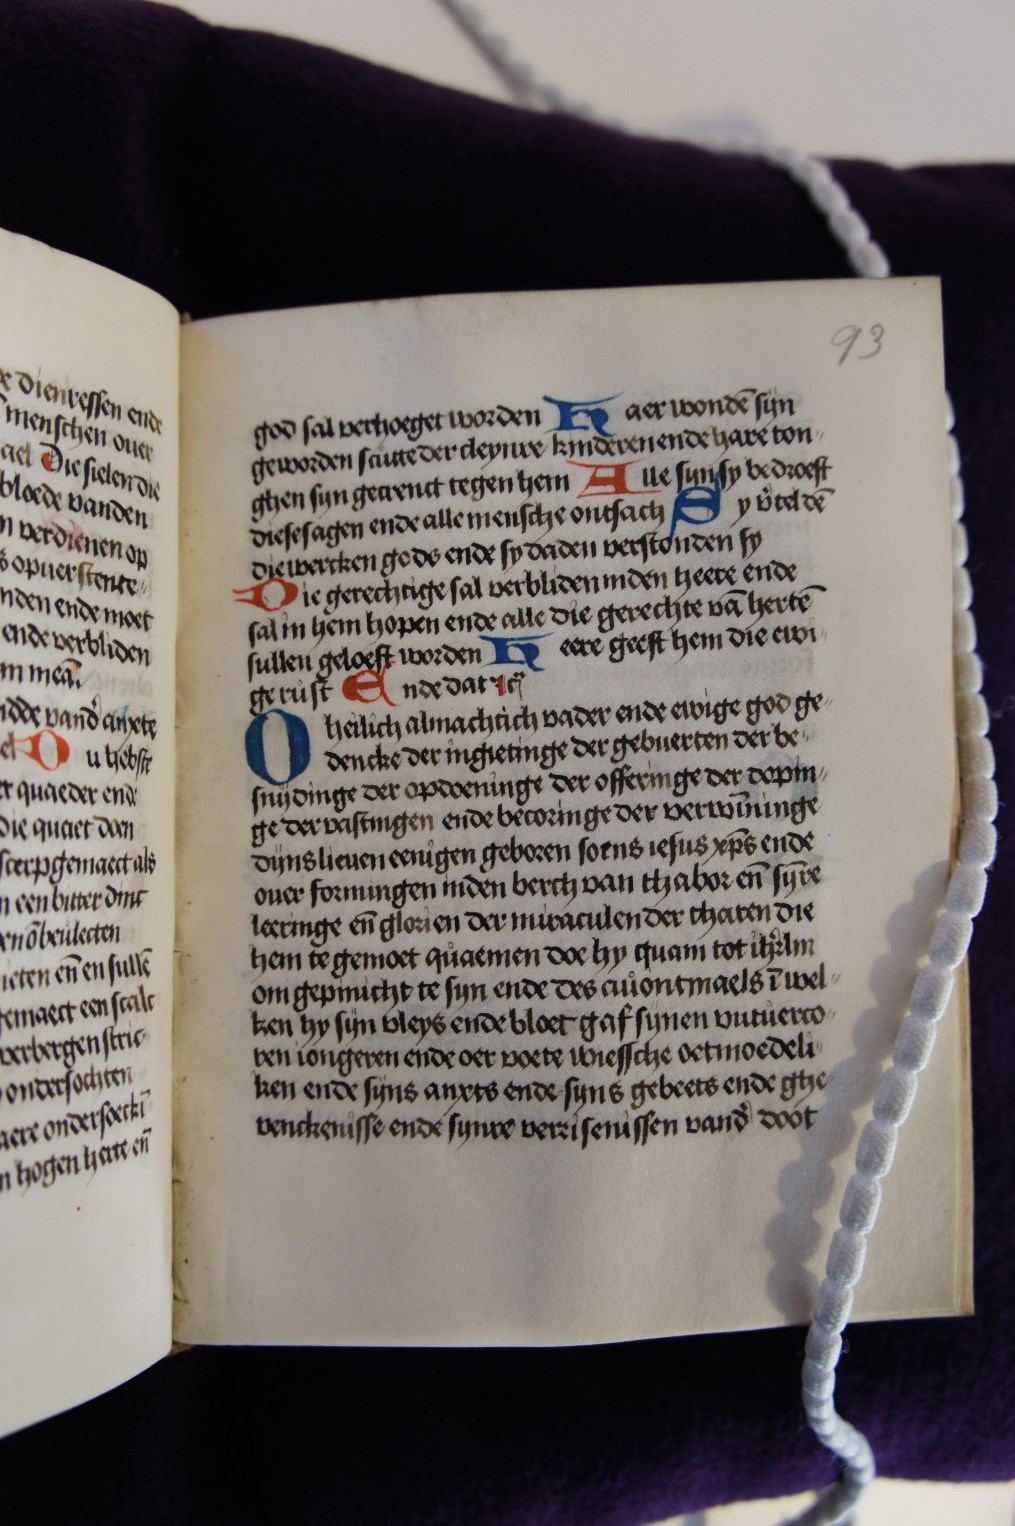 x dienressen ende
menschen ouer
ael Die sielen die
bloede vanden
n verdienen op
s opuerstente-
nden ende moet
ende verbliden
m meā.
dde vand anxte
el Du hebste
er quaeder ende
die quaet doen
scerp gemaect als
n een bitter dinc
ieten en̄ en sullē
gemaect een scalc
verbergen stric-
ondersochten
n hogen herte en̄
93
god sal verhoeget worden Haer wondē sijn
geworden scutte der cleynre kinderen ende hare ton-
ghen sijn gecrenct tegen hem Alle sijn sy bedroeft
die se sagen ende alle mensche ontsach Sy v̄teldē
die wercken gods ende sy daden verstonden sy
Die gerechtige sal verbliden inden heere ende
sal in hem hopen ende alle die gerechte vā hertē
sullen geloeft worden Heere geeft hem die ewi-
ge rust Ende dat
O heilich almachtich vader ende ewige god ge-
dencke der ingietinge der gebuerten der be-
snijdinge der opdoeninge der offeringe der dopin-
ge der vastingen ende becoringe der verwīninge
dijns lieuen eenigen geboren soens iesus xp̄s ende
ouer formingen inden berch van thabor en̄ sijre
leeringe en̄ glorien der miraculen der scharen die
hem te gemoet quaemen doe hy quam tot ihrlm
om gepinicht te sijn ende des auontmaels ī wel-
ken hy sijn vleys ende bloet gaf sijnen vutuerco-
ren iongeren ende oer voete wiessche oetmoedeli-
ken ende sijns anxts ende sijns gebeets ende ghe-
venckenisse ende sijnre verrisenissen vand doot